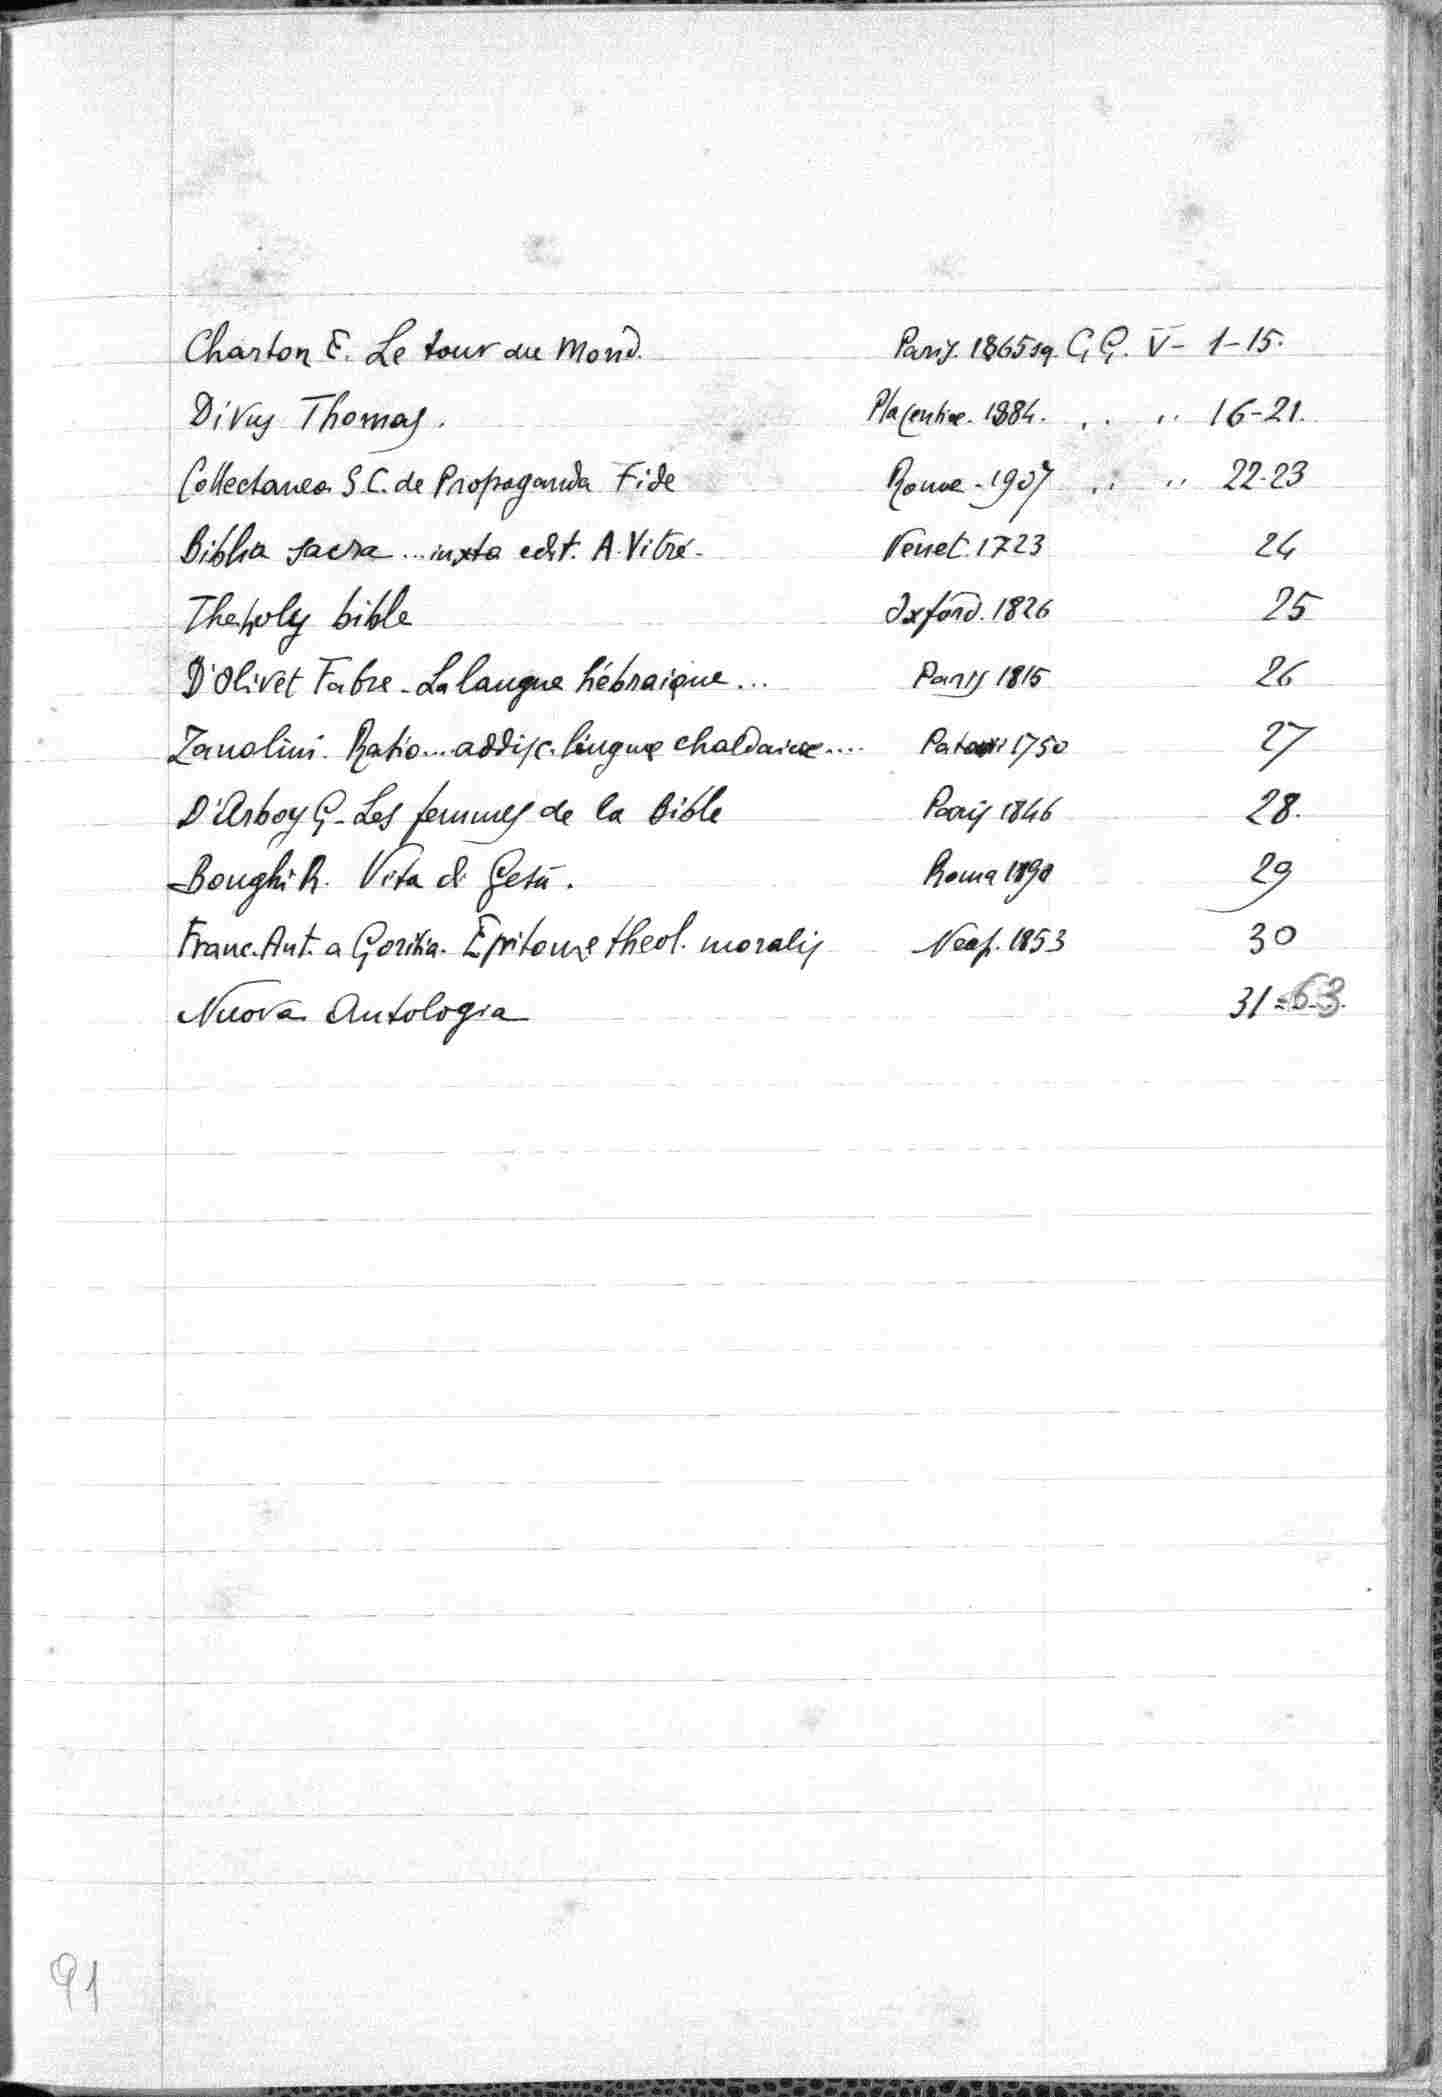 Charton E. Le tour du Mond. Paris. 1865 sq. G G. V - 1-15.
Divus Thomas. Placentiae. 1884. " " 16-21.
Collectanea S. C. de Propaganda Fide Romae - 1907 " " 22-23
Biblia sacra ... iuxta edit. A. Vitré - Venet. 1723 24
The holy bible Oxford. 1826 25
D'Olivet Fabre - La langue hébraique ... Paris 1815 26
Zanolini. Ratio ... addisc. linguae chaldaicae .... Patavii 1750 27
D'Arboy G - Les femmes de la Bible Paris 1846 28.
Bonghi R. Vita di Gesù. Roma 1890 29
Franc. Ant. a Goritia. Epitome theol. moralis Neap. 1853 30
Nuova Antologia 31=63.
91